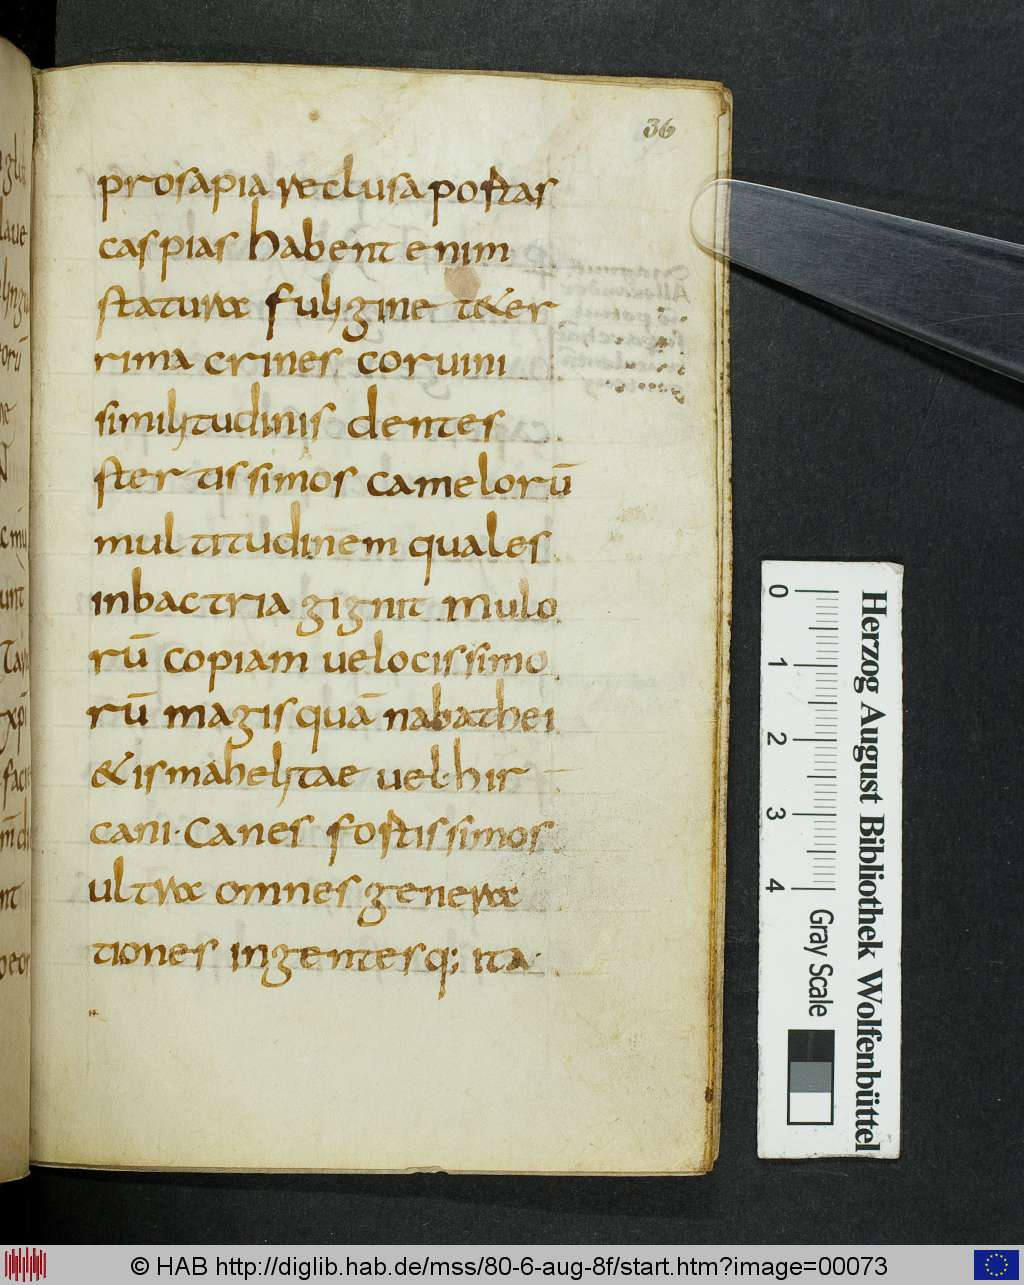 36
prosapia reclusa portas
caspias habent enim
statura fuligine teter
rima crines coruini
similitudinis dentes
stertissimos camelorū
multitudinem quales
inbactria gignit mulo
rū copiam uelocissimo
rū magisquā nabathei
&ismahelitae uel hir
cani· Canes fortissimos
ultra omnes genera
tiones ingentesq; ita·
0 1 2 3 4
Herzog August Bibliothek Wolfenbüttel
Gray Scale
© HAB http://diglib.hab.de/mss/80-6-aug-8f/start.htm?image=00073